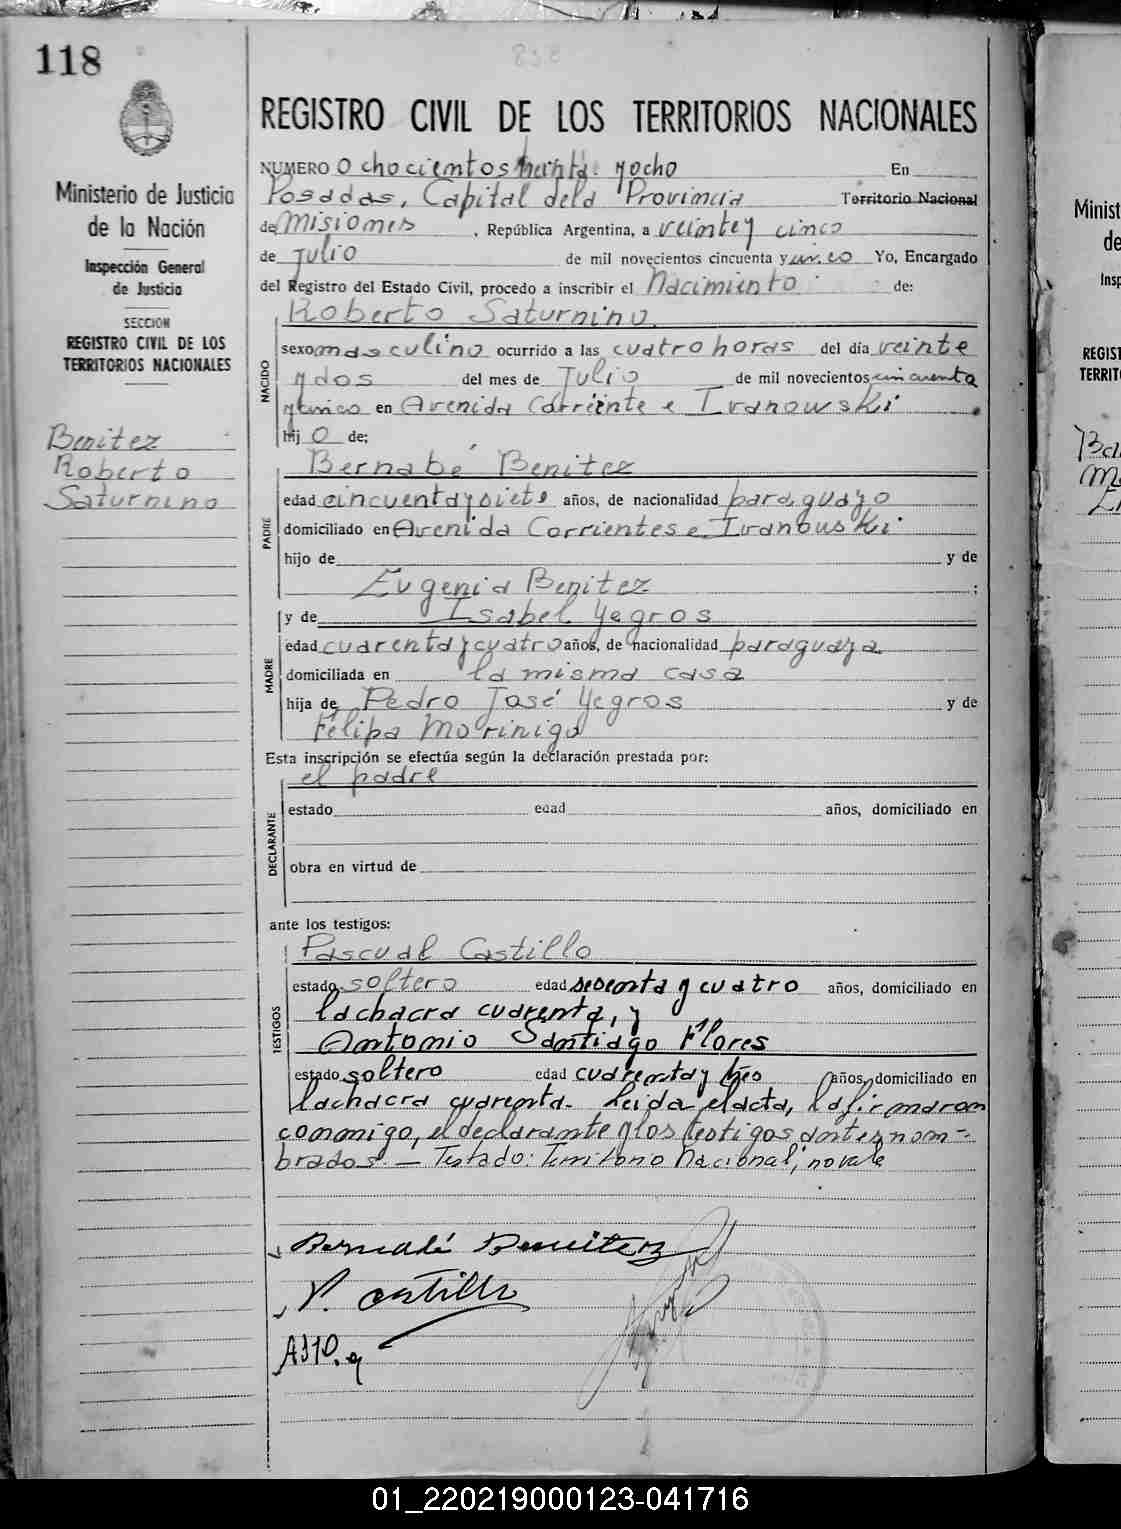 118
838
REGISTRO CIVIL DE LOS TERRITORIOS NACIONALES
Ministerio de Justicia
de la Nación
Inspección General
de Justicia
SECCION
REGISTRO CIVIL DE LOS
TERRITORIOS NACIONALES
Benitez
Roberto
Saturnino
NUMERO Ochocientos treinta yocho En
Posadas, Capital dela Provincia Territorio Nacional
de Misiones, República Argentina, a veintey cinco
de Julio de mil novecientos cincuenta y cinco Yo, Encargado
del Registro del Estado Civil, procedo a inscribir el Nacimiento de:
Roberto Saturnino
NACIDO
sexo masculino ocurrido a las cuatro horas del día veinte
ydos del mes de Julio de mil novecientos cincuenta
ycinco en Avenida Corriente e Ivanowski
hij o de;
Bernabé Benitez
PADRE
edad cincuentaysiete años, de nacionalidad paraguayo
domiciliado en Avenida Corrientes e Ivanouski
hijo de y de
Eugenia Benitez ;
y de Isabel Yegros
MADRE
edad cuarentaycuatro años, de nacionalidad paraguaya
domiciliada en la misma casa
hija de Pedro José Yegros y de
Felipa Morinigo
Esta inscripción se efectúa según la declaración prestada por:
el padre
DECLARANTE
estado edad años, domiciliado en
obra en virtud de
ante los testigos:
Pascual Castillo
TESTIGOS
estado soltero edad sesenta y cuatro años, domiciliado en
lachacra cuarenta, y
Antonio Santiago Flores
estado soltero edad cuarentay tres años, domiciliado en
lachacra cuarenta. Leida elacta, lafirmaron
conmigo, el declarante y los testigos antes nom-
brados.— Testado: Territorio Nacional; no vale
Bernabé Beniitez
P. Castillo
Minist
de
Insp
REGIST
TERRIT
01_220219000123-041716